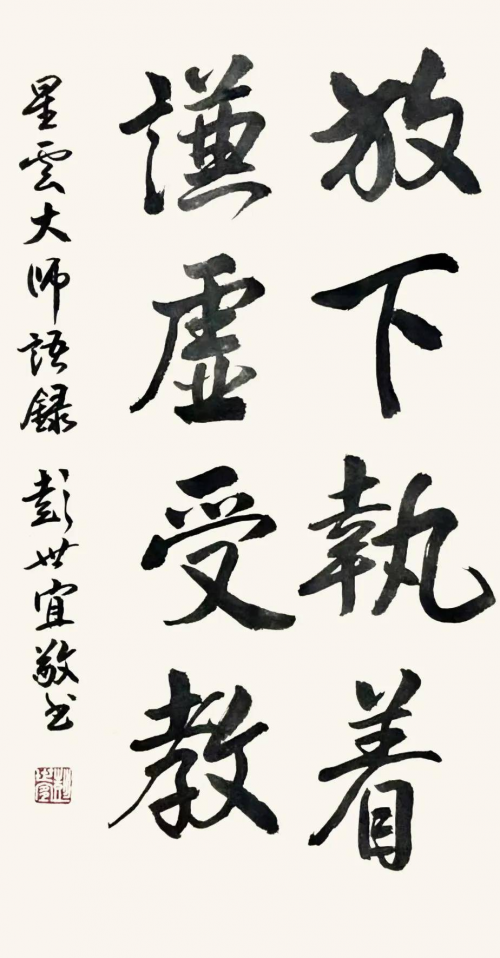 放下執着
謙虛受教
星雲大師語録 彭世宜敬书